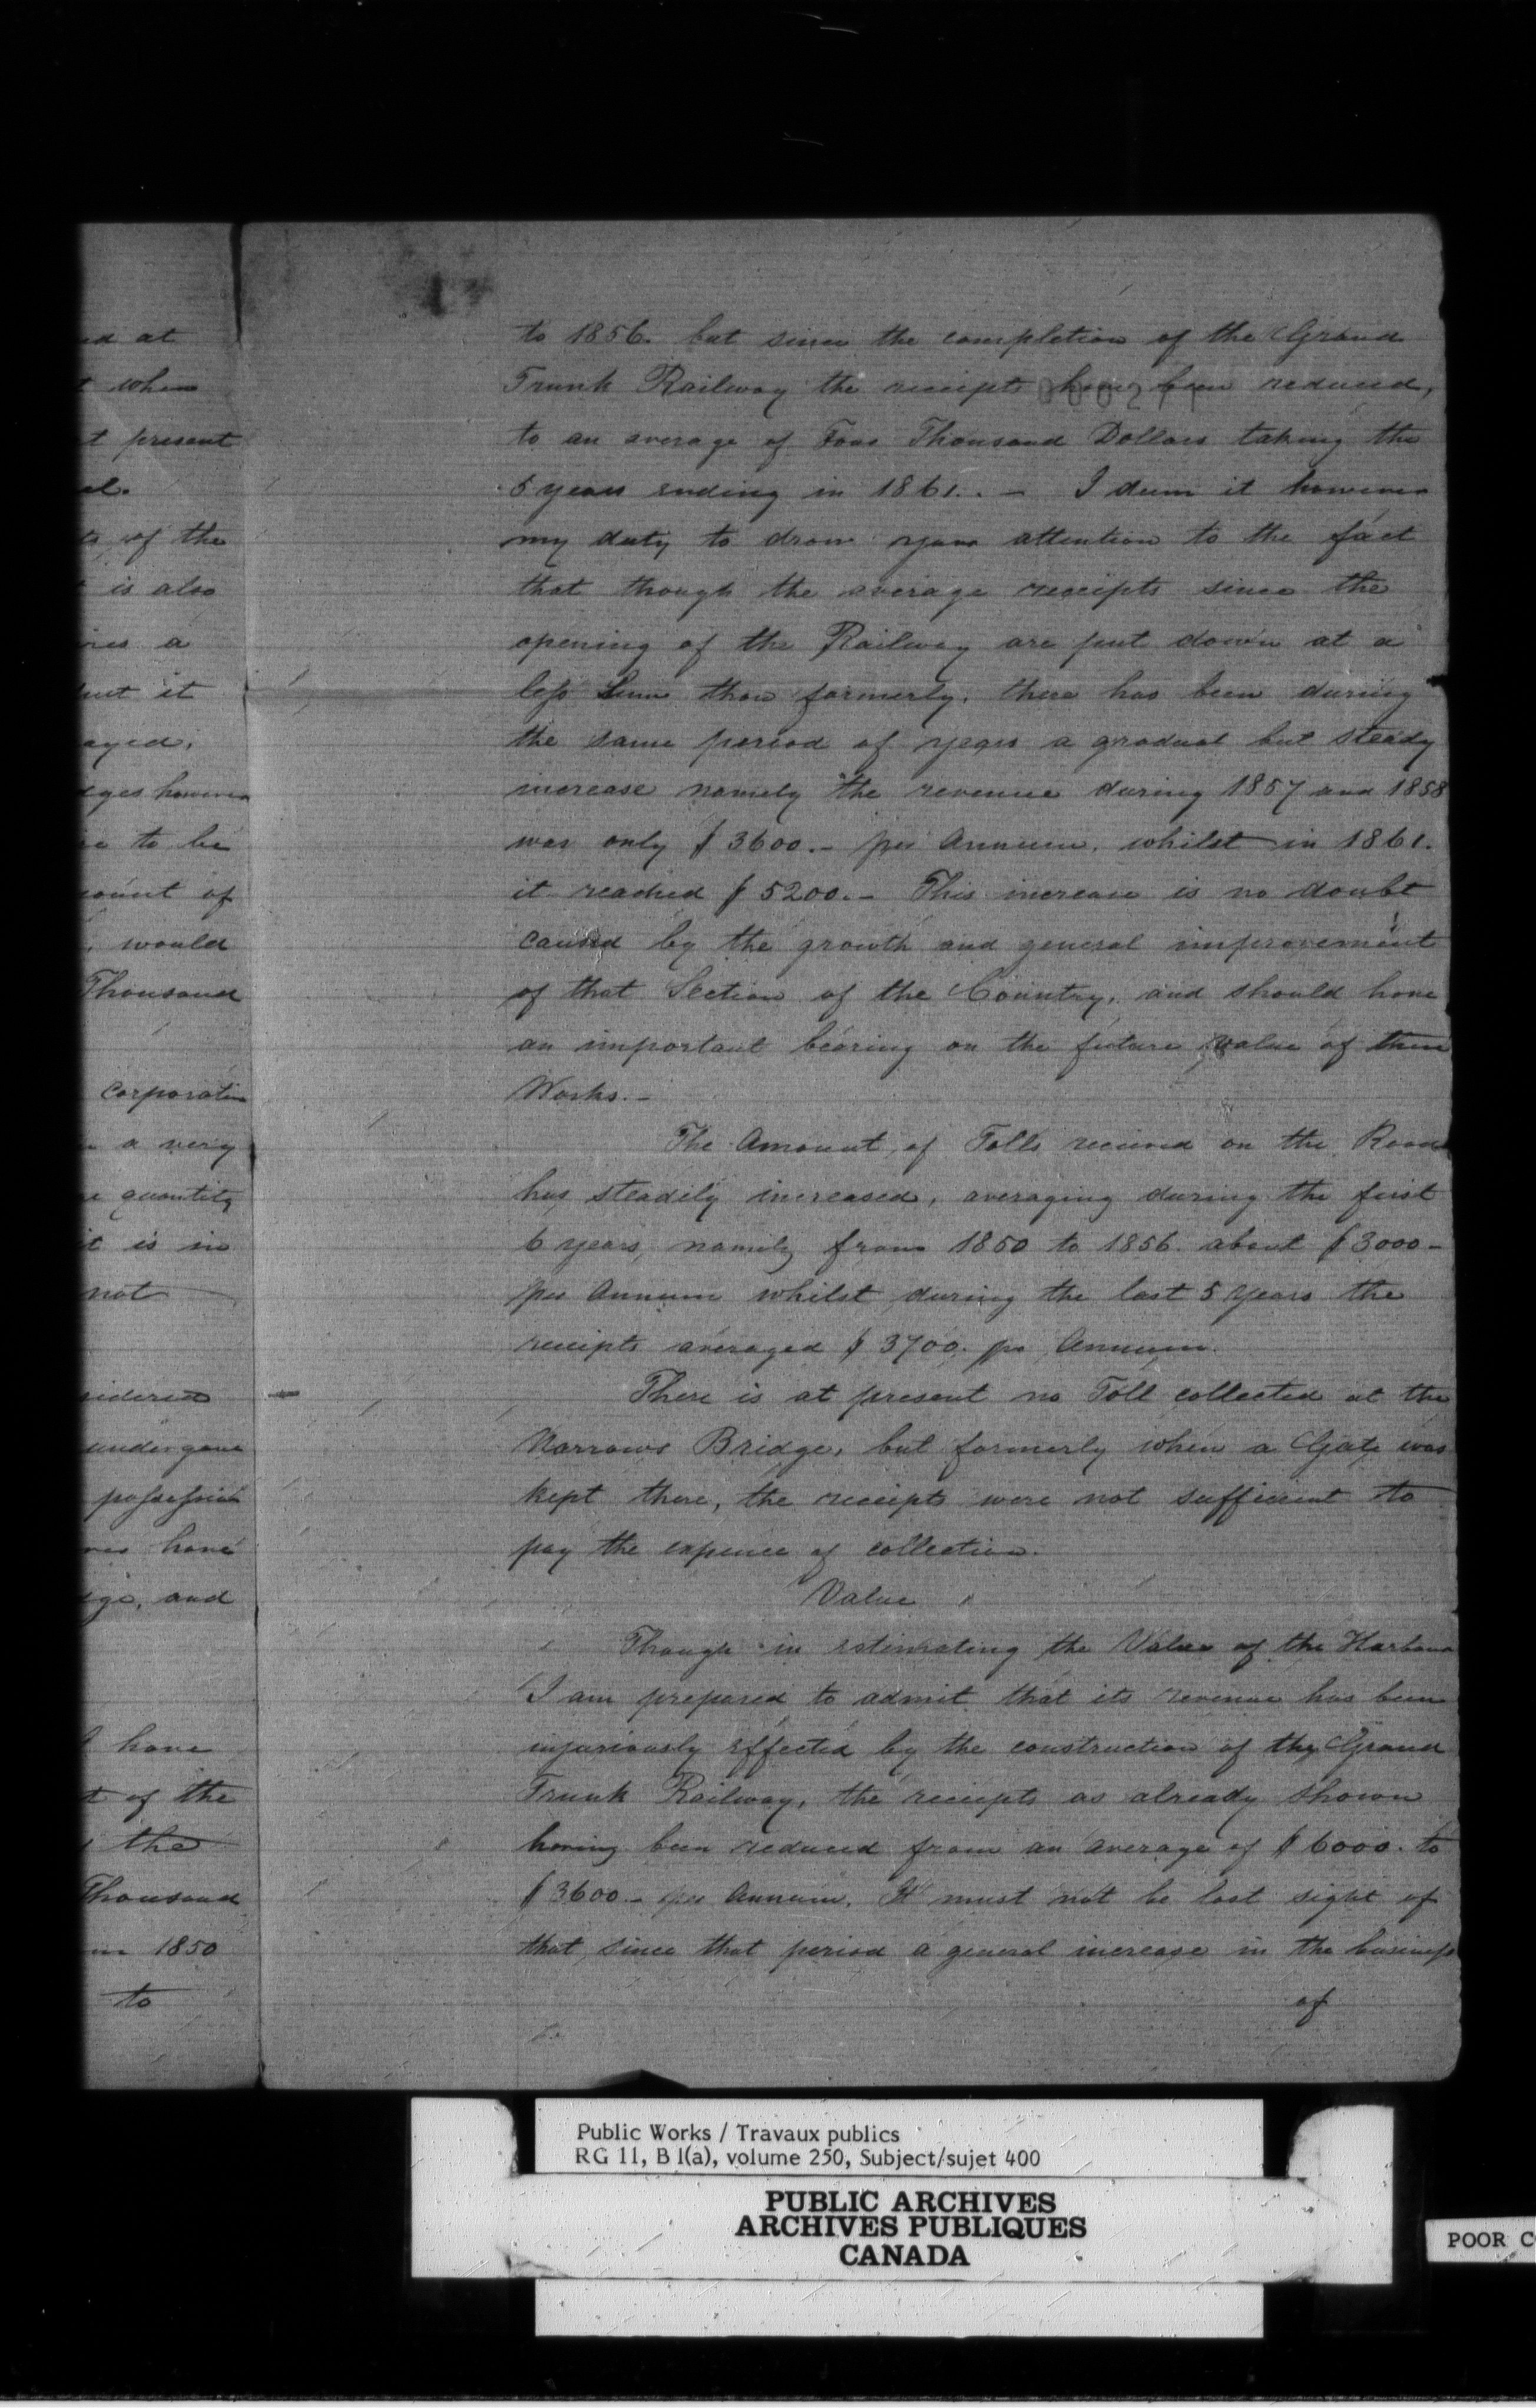 ed at
t when
t present
el.
ts of the
t is also
ires a
put it
ayed.
dges however
re to be
mount of
. would
Thousand
corporation
n a very
e quantity
it is in
not
sidered
undergone
possession
res have
dge, and
I have
t of the
the
Thousand
in 1850
to
to 1856. but since the completion of the Grand
Trunk Railway the receipts have been reduced,
to an average of Four Thousand Dollars taking the
5 years ending in 1861. - I deem it however
my duty to draw your attention to the fact
that though the average receipts since the
opening of the Railway are put down at a
less Sum than formerly, there has been during
the same period of years a gradual but steady
increase namely the revenue during 1857 and 1858
was only $3600.- per Annum, whilst in 1861.
it reached $5200.- This increase is no doubt
caused by the growth and general improvement
of that Section of the Country, and should have
an important bearing on the future value of these
Works.-
The Amount of Tolls received on the Road
has steadily increased, averaging during the first
6 years, namely from 1850 to 1856 about $3000-
per Annum whilst during the last 5 years the
receipts averaged $3700. per Annum.
There is at present no Toll collected at the
Narrows Bridge, but formerly when a Gate was
kept there, the receipts were not sufficient to
pay the expence of collection.
Value
Though in estimating the Value of the Harbour
I am prepared to admit that its revenue has been
injuriously effected by the construction of the Grand
Trunk Railway, the receipts as already shown
having been reduced from an average of $6000. to
$3600- per Annum. It must not be lost sight of
that since that period a general increase in the business
of
Public Works / Travaux publics
RG 11, B 1(a), volume 250, Subject/sujet 400
PUBLIC ARCHIVES
ARCHIVES PUBLIQUES
CANADA
POOR C